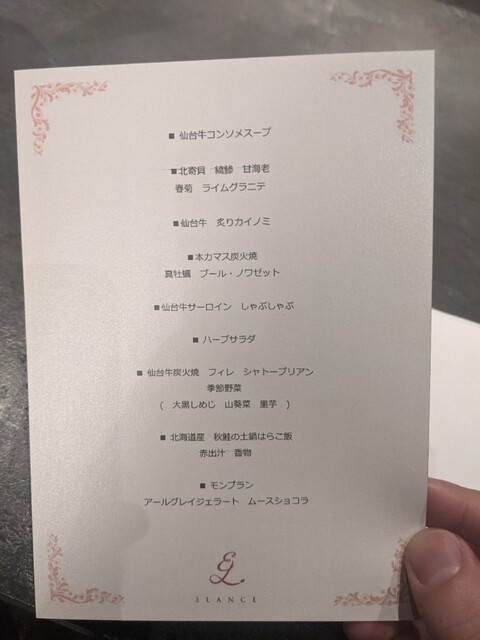 ■ 仙台牛コンソメスープ
■北寄貝 縞鯵 甘海老
春菊 ライムグラニテ
■仙台牛 炙りカイノミ
■本カマス炭火焼
真牡蠣 ブール・ノワゼット
■仙台牛サーロイン しゃぶしゃぶ
■ ハーブサラダ
■ 仙台牛炭火焼 フィレ シャトーブリアン
季節野菜
( 大黒しめじ 山葵菜 里芋 )
■ 北海道産 秋鮭の土鍋はらこ飯
赤出汁 香物
■ モンブラン
アールグレイジェラート ムースショコラ
EL
ELANCE